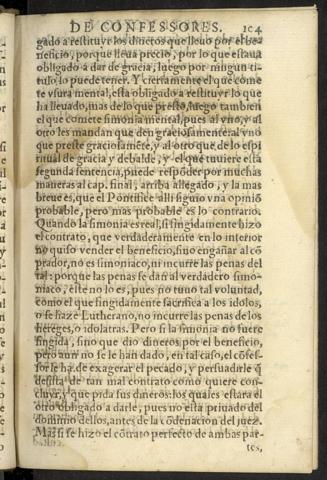 DE CONFESSORES. 104
gado a restituyr los dineros que lleuo por el be
neficio, porque lleua precio, por lo que estaua
obligado a dar de gracia, luego por ningun ti-
tulo lo puede tener. Y ciertamente el que come
te vsura mental, esta obligado a restituyr lo que
ha lleuado, mas de lo que presto, luego tambien
el que comete simonia mental, pues al vno, y al
otro les mandan que den graciosamente: al vno
que preste graciosamēte, y al otro que de lo espi
ritual de gracia y debalde, y el que tuuiere esta
segunda sentencia, puede respōder por muchas
maneras al cap. final, arriba allegado, y la mas
breue es, que el Pontifice alli siguio vna opiniō
probable, pero mas probable es lo contrario.
Quando la simonia es real, si fingidamente hizo
el contrato, que verdaderamente en lo interior
no quiso vender el beneficio, sino engañar al cō
prador, no es simoniaco, ni incurre las penas del
tal: porque las penas se dan al verdadero simo-
niaco, este no lo es, pues no tuuo tal voluntad,
como el que fingidamente sacrifica a los idolos,
o se haze Lutherano, no incurre las penas de los
hereges, o idolatras. Pero si la simonia no fuere
fingida, sino que dio dineros por el beneficio,
pero aun no se le han dado, en tal caso, el cōfes-
sor le ha de exagerar el pecado, y persuadirle q̄
desista de tan mal contrato como quiere con-
cluyr, y que pida sus dineros: los quales estara el
otro obligado a darle, pues no esta priuado del
dominio dellos, antes de la cōdenacion del juez.
Mas si se hizo el cōtrato perfecto de ambas par-
tes,